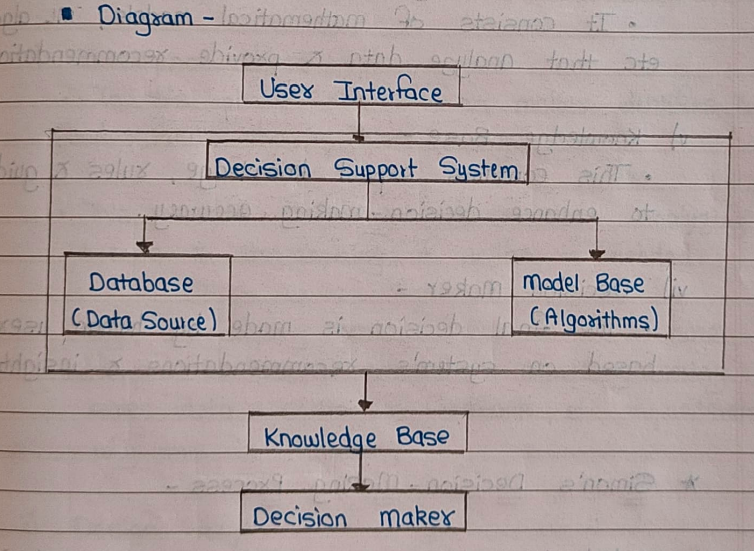 ▪ Diagram -
User Interface
Decision Support System
Database
(Data Source)
Model Base
(Algorithms)
Knowledge Base
Decision maker